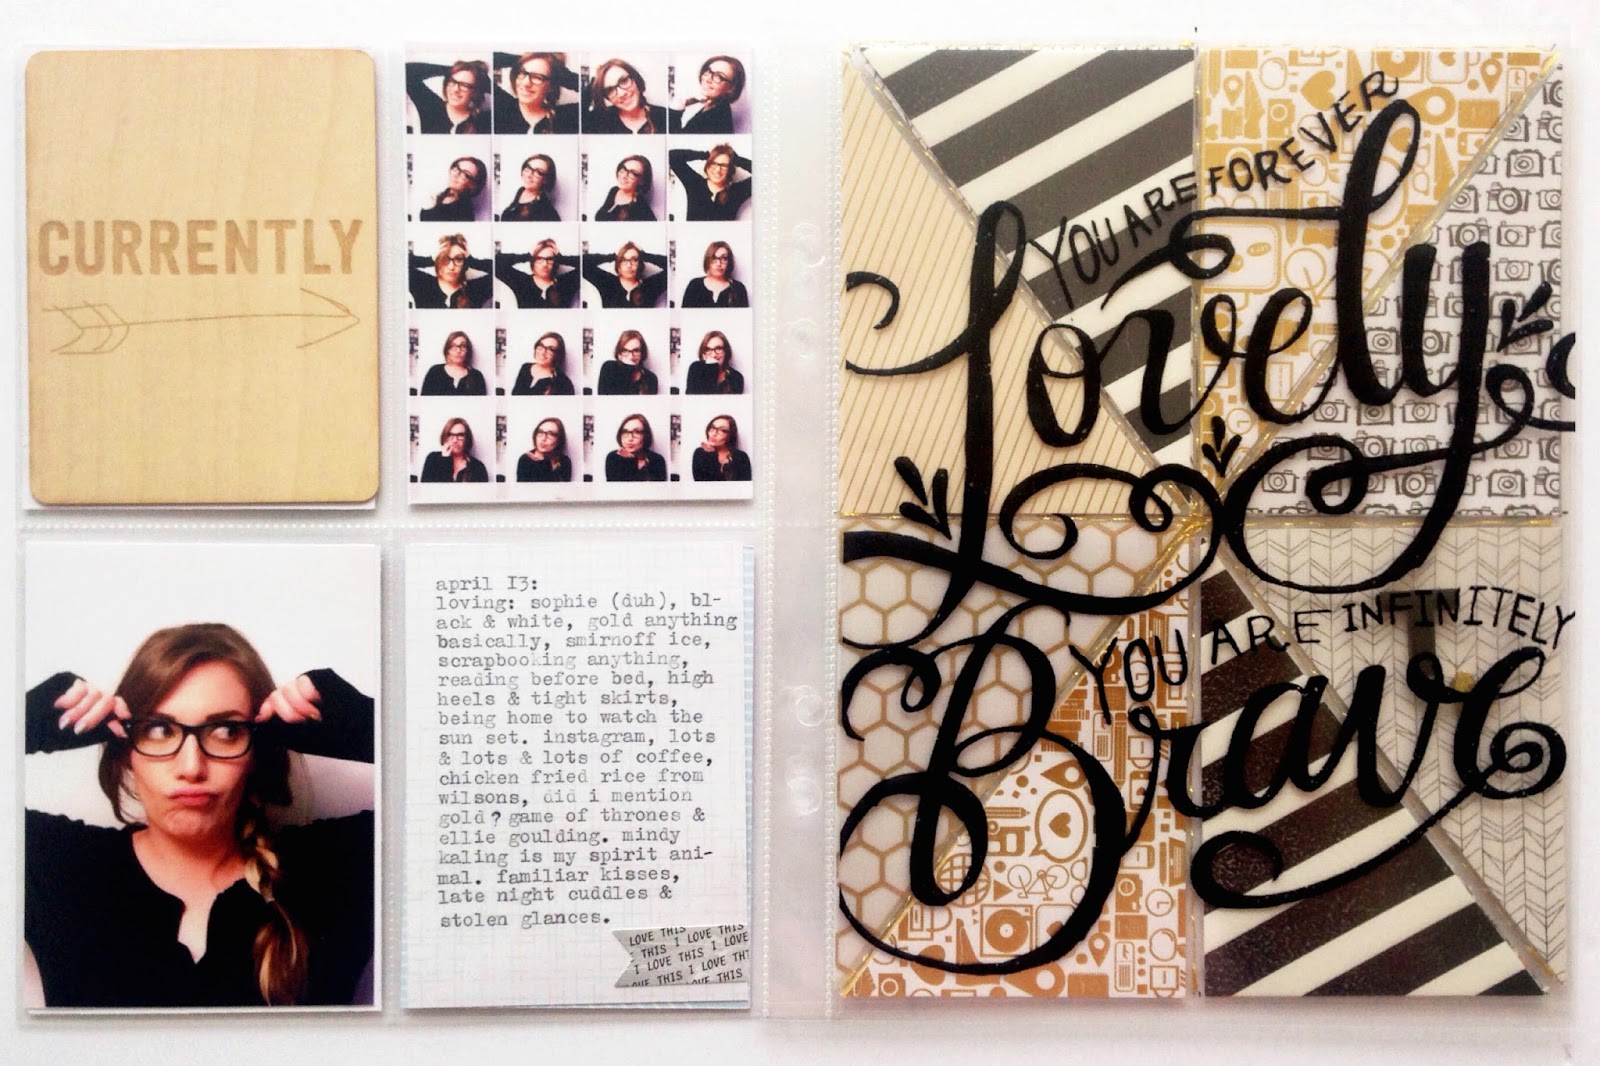 CURRENTLY
april 13:
loving: sophie (duh), bl-
ack & white, gold anything
basically, smirnoff ice,
scrapbooking anything,
reading before bed, high
heels & tight skirts,
being home to watch the
sun set. instagram, lots
& lots & lots of coffee,
chicken fried rice from
wilsons, did i mention
gold? game of thrones &
ellie goulding. mindy
kaling is my spirit ani-
mal. familiar kisses,
late night cuddles &
stolen glances.
LOVE THIS I LOVE THIS
THIS I LOVE THIS I LOVE
I LOVE THIS I LOVE THIS
THIS I LOVE THIS I LOVE TH
LOVE THIS I LOVE THIS
YOU ARE FOREVER
Lovely
YOU ARE INFINITELY
Brave